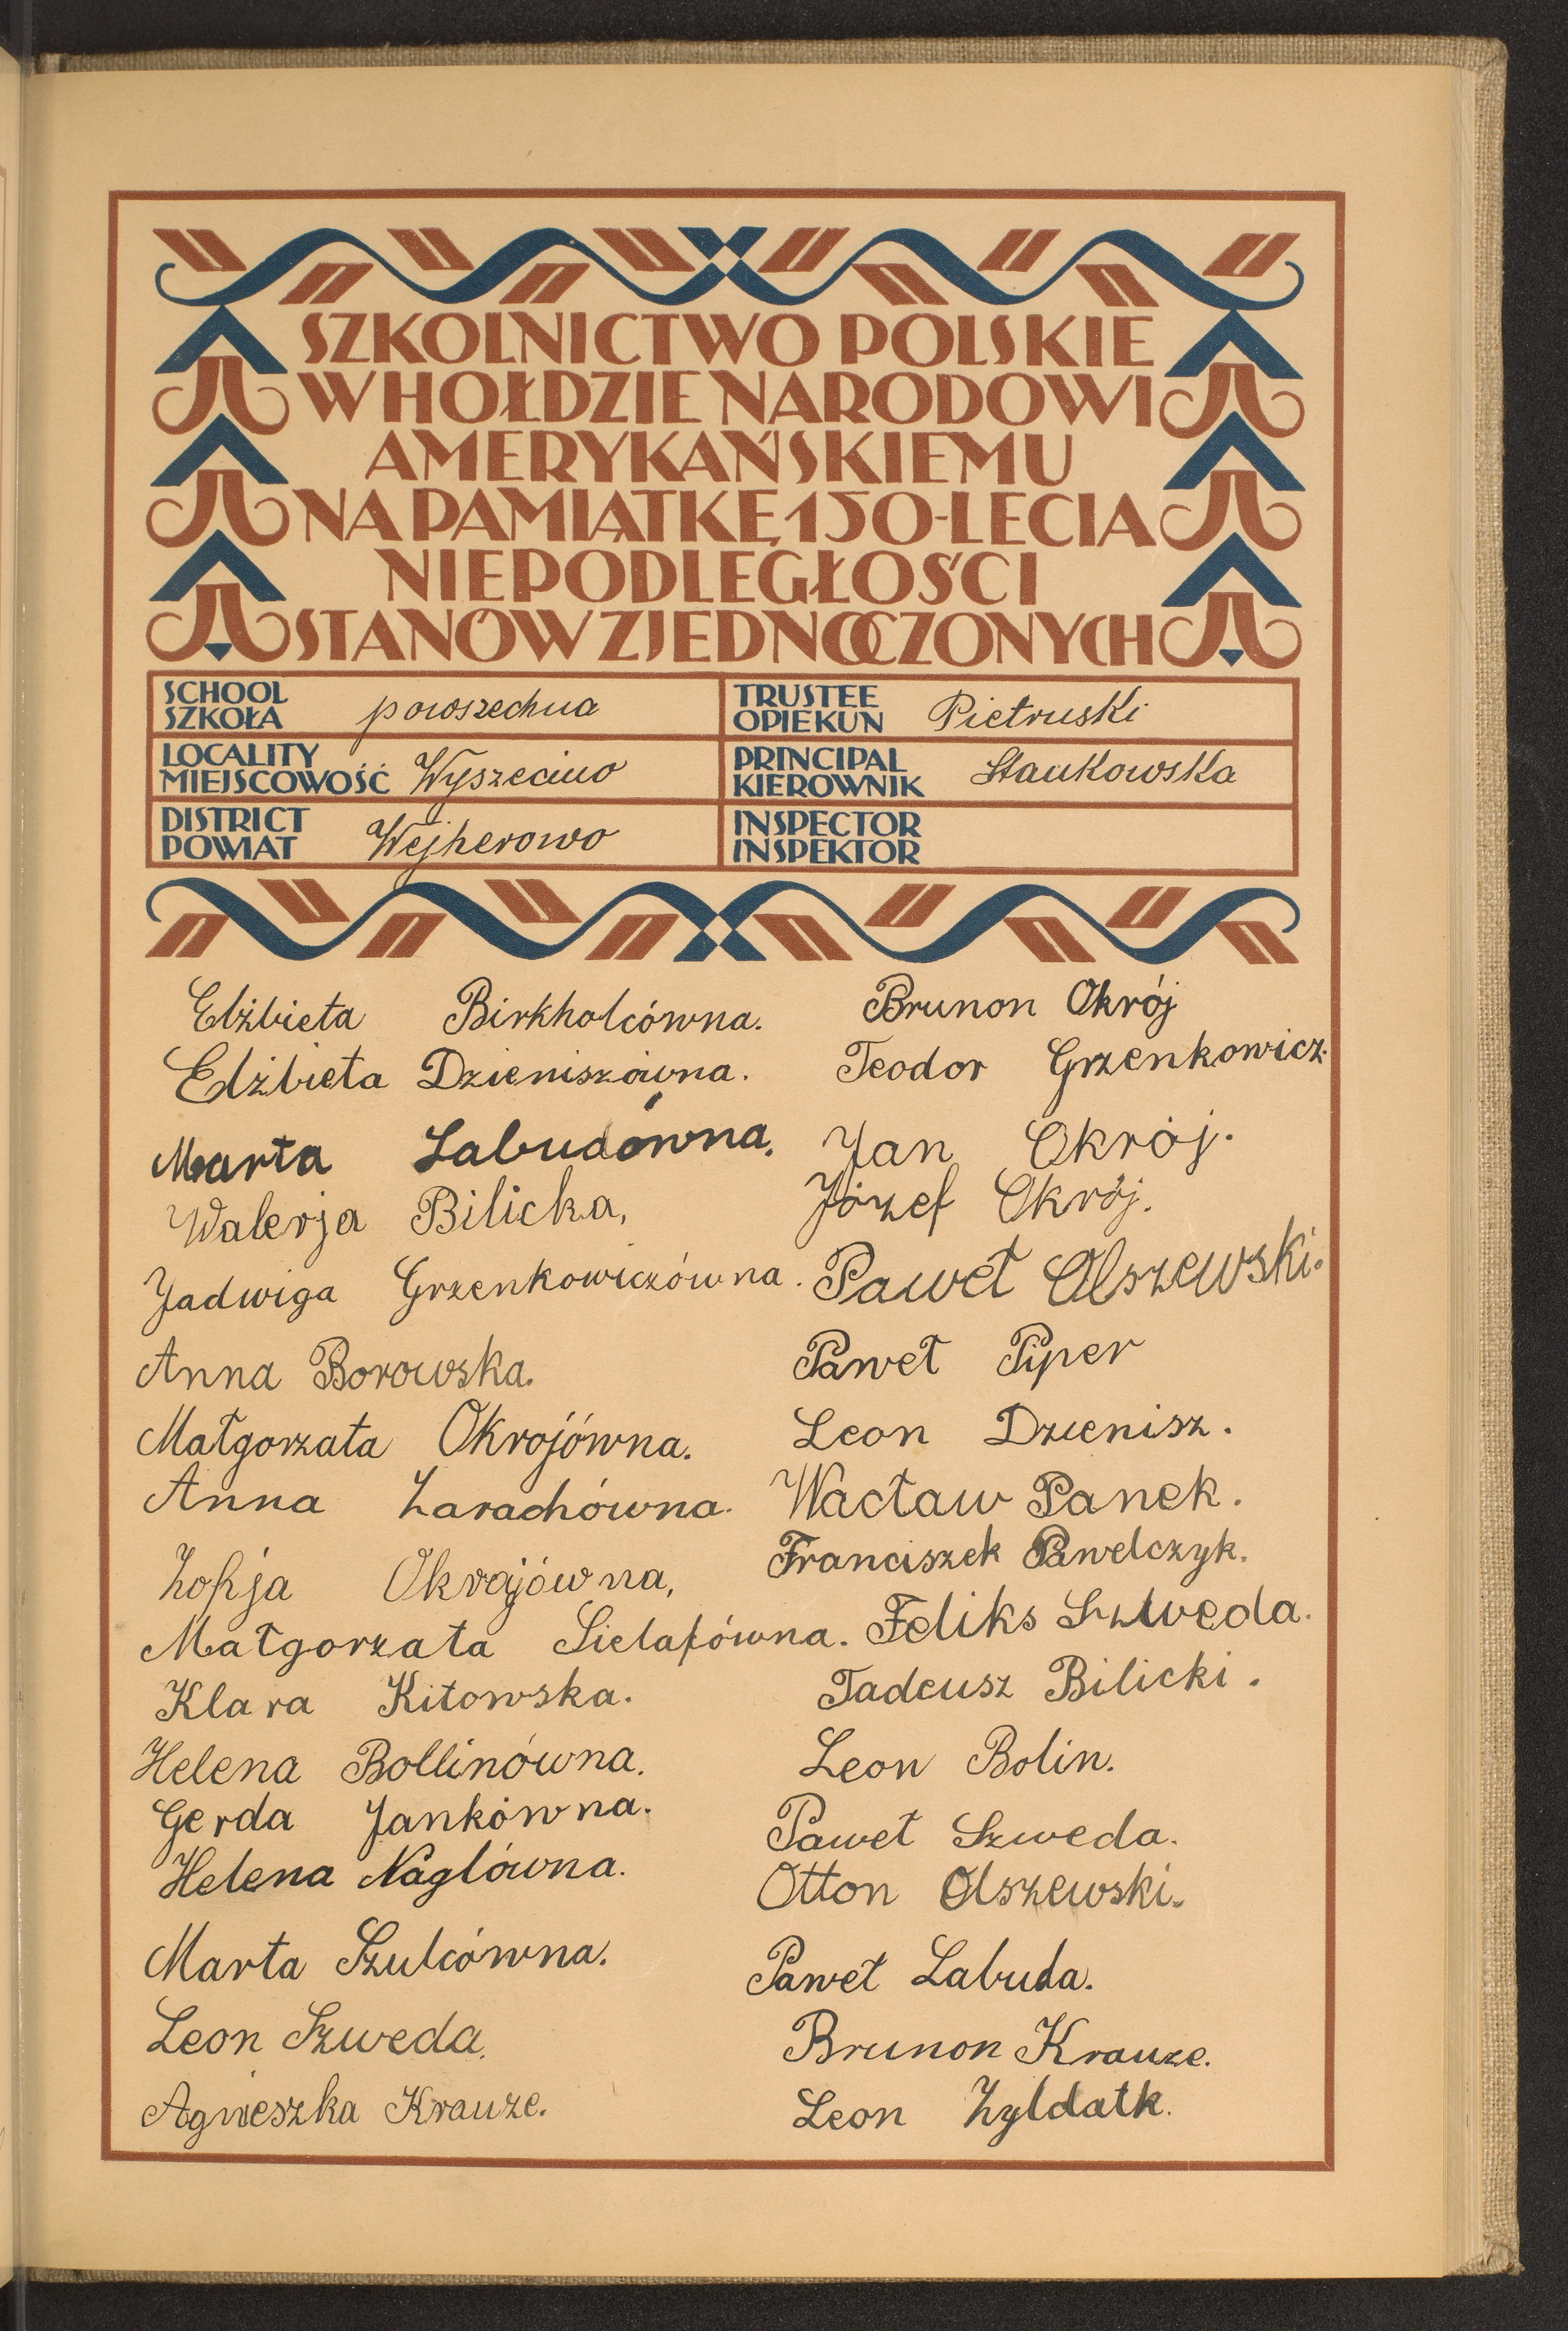 SZKOLNICTWO POLSKIE
W HOŁDZIE NARODOWI
AMERYKAŃSKIEMU
NA PAMIĄTKĘ 150-LECIA
NIEPODLEGŁOŚCI
STANÓW ZJEDNOCZONYCH
SCHOOL
SZKOŁA powszechna
TRUSTEE
OPIEKUN Pietruski
LOCALITY
MIEJSCOWOŚĆ Wyszecino
PRINCIPAL
KIEROWNIK Stankowska
DISTRICT
POWIAT Wejherowo
INSPECTOR
INSPEKTOR
Elżbieta Birkholcówna.
Elżbieta Dzieniszówna.
Marta Labudówna.
Walerja Bilicka,
Jadwiga Grzenkowiczówna.
Anna Borowska.
Małgorzata Okrojówna.
Anna Zarachówna.
Zofja Okrojówna,
Małgorzata Sielafówna.
Klara Kitowska.
Helena Bollinówna.
Gerda Jankówna.
Helena Naglówna.
Marta Szulcówna.
Leon Szweda.
Agnieszka Krauze.
Brunon Okrój
Teodor Grzenkowicz.
Jan Okrój.
Józef Okrój.
Paweł Olszewski.
Paweł Piper
Leon Dzienisz.
Wacław Panek.
Franciszek Pawelczyk.
Feliks Szweda.
Tadeusz Bilicki.
Leon Bolin.
Paweł Szweda.
Otton Olszewski.
Paweł Labuda.
Brunon Krauze.
Leon Zyldatk.